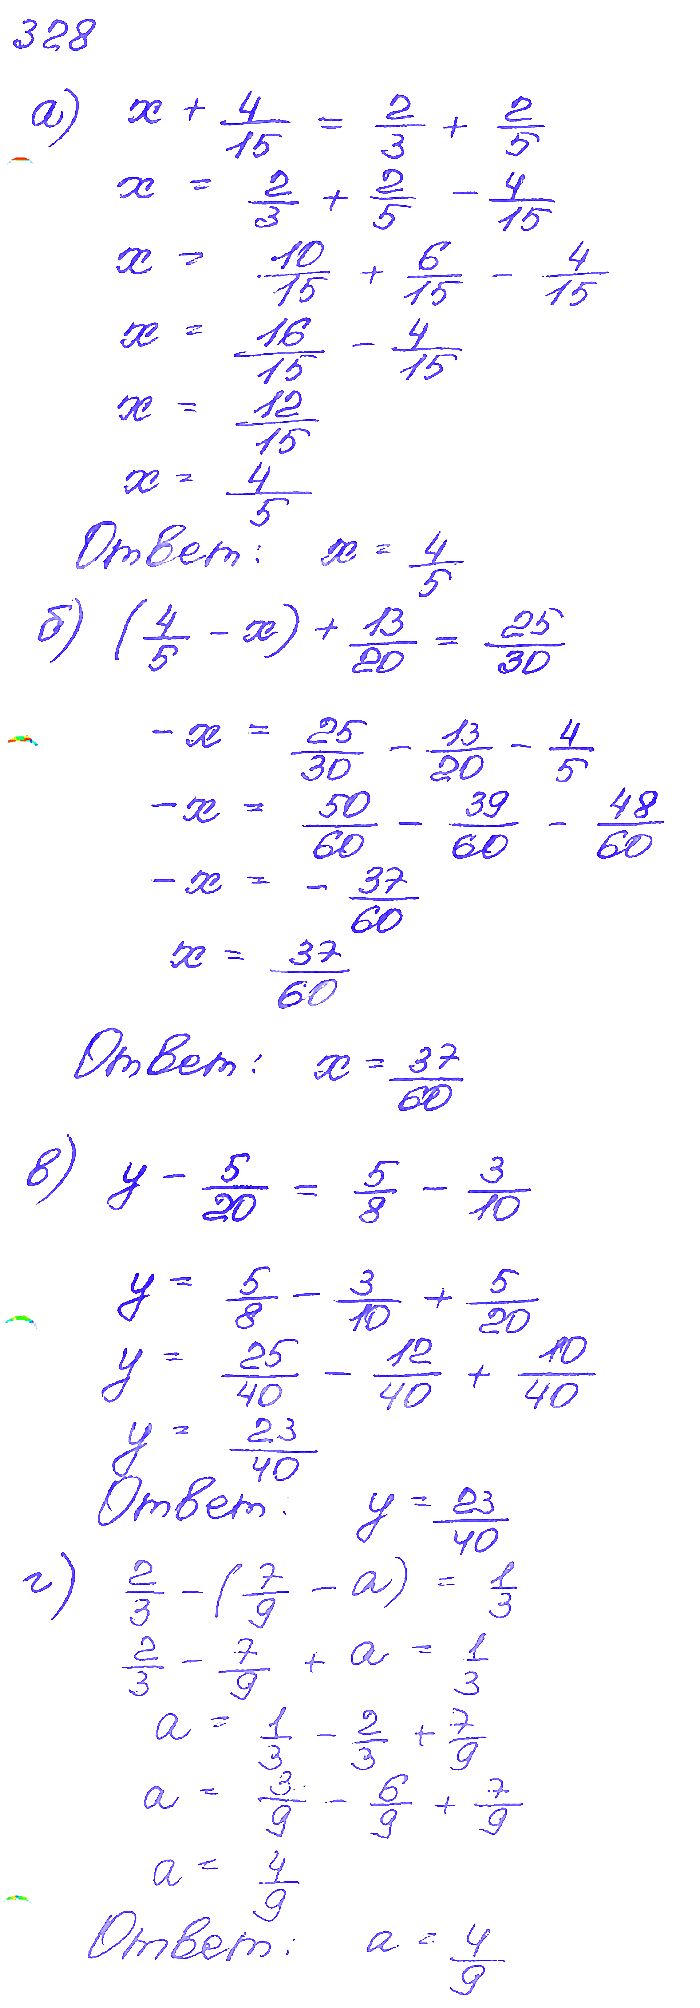 328
а) x + 4/15 = 2/3 + 2/5
x = 2/3 + 2/5 - 4/15
x = 10/15 + 6/15 - 4/15
x = 16/15 - 4/15
x = 12/15
x = 4/5
Ответ: x = 4/5
б) (4/5 - x) + 13/20 = 25/30
-x = 25/30 - 13/20 - 4/5
-x = 50/60 - 39/60 - 48/60
-x = - 37/60
x = 37/60
Ответ: x = 37/60
в) y - 5/20 = 5/8 - 3/10
y = 5/8 - 3/10 + 5/20
y = 25/40 - 12/40 + 10/40
y = 23/40
Ответ: y = 23/40
г) 2/3 - (7/9 - a) = 1/3
2/3 - 7/9 + a = 1/3
a = 1/3 - 2/3 + 7/9
a = 3/9 - 6/9 + 7/9
a = 4/9
Ответ: a = 4/9